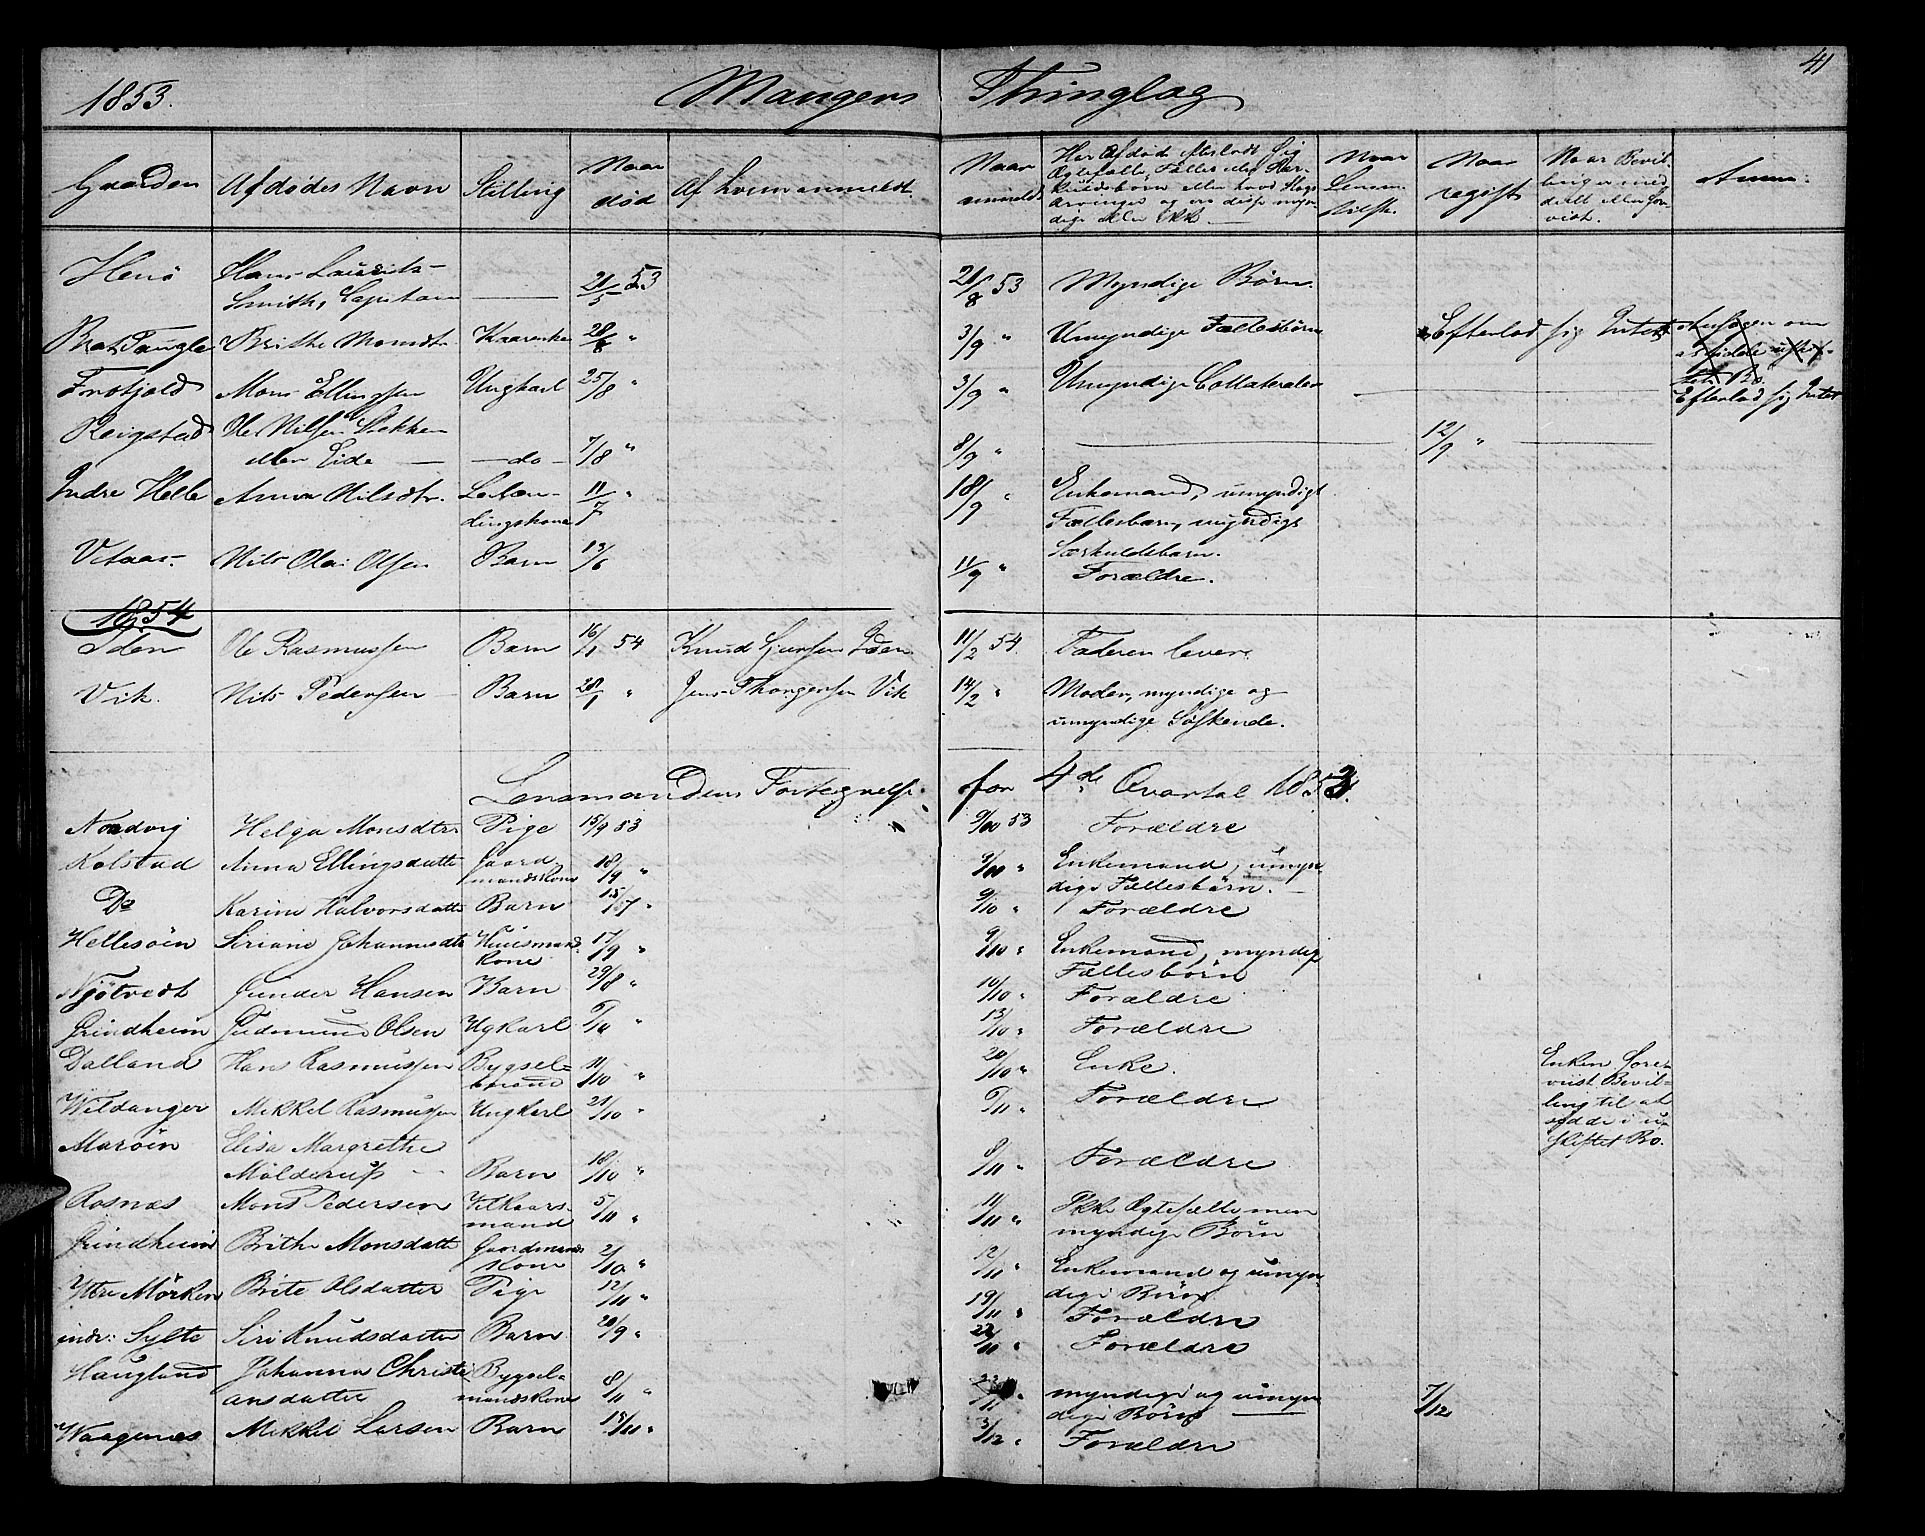 41
1853. Mangers Thinglag
Gaarden Afdødes Navn Stilling Naar død Af hvem anmeldt. Naar anmeldt Har Afdøde efterladt sig Ægtefælle, Fælles eller Særkuldsbørn eller hvad Slags Arvinger og ere disse myndige eller ikke Naar Registr. Naar Bevilling er meddelt eller forevist. Anm:
Herø Hans Laurits Smith, Capitain — 21/5 53 21/8 53 Myndige Børn.
Brithe Monsdt. 28/8 " 3/9 " Umyndige Fællesbørn Efterlod sig Intet
Mons Ellingsen Ungkarl 25/8 " 3/9 " Umyndige Collateraler Efterlod sig Intet
Reigstad Nilsen eller Eide — do — 7/8 " 8/9 " 12/9 "
Indre Helle Anna Nilsdtr. Leilændingskone 11/7 " 18/9 " Enkemand, umyndigt Fællesbarn, myndigt Særkuldsbarn.
Vetaas Nils Olai Olsen Barn 13/6 11/9 " Forældre.
1854
Iden Ole Rasmussen Barn 16/1 54 Knud Iden 11/2 54 Faderen lever.
Vik. Nils Pedersen Barn 28/1 " Jens Vik 14/2 " Moder, myndige og
umyndige Søskende.
Lensmandens Fortegnelse for 4de Qvartal 1853.
Nordvig Helga Monsdtter Pige 15/9 53 9/10 53 Forældre
Kolstad Anna Ellingsdatter Gaardmandskone 18/9 " 9/10 " Enkemand, umyndige Fællesbørn.
Do Karine Halvorsdatter Barn 9/10 " Forældre
Hellesøen Siriane Johannesdtr Huusmandskone 17/9 " 9/10 " Enkemand, myndige Fællesbørn
Njøtvedt Gunder Hansen Barn 29/8 " 10/10 " Forældre
Grindheim Gudmund Olsen Ugkarl 6/10 " 13/10 " Forældre
Dalland Hans Rasmussen Bygselmand 11/10 " 20/10 " Enke. Enken foreviist Bevilling til at sidde i uskiftet Bo.
Wildanger Mikkel Rasmussen Ungkarl 21/10 " 6/11 " Forældre
Marøen Elisa Margrethe
Møldrup Barn 18/10 " 8/11 " Forældre
Rosnæs Mons Pedersen Vilkaarsmand 5/11 " 11/11 " Ikke Ægtefælle men myndige Børn
Grindheim Brithe Monsdatter Gaardmandskone 2/10 " 12/11 " Enkemand og umyndige Børn
Ytre Mørken Brite Olsdatter Pige 12/11 " 19/11 " Forældre
indr: Sylte Siri Knudsdatter Barn 20/9 " Forældre
Haugland Johanna Christiansdatter Bygselmandskone 8/11 " myndige og umyndige Børn 7/12
Waagenæs Mikkel Larsen Barn 15/11 " 3/12 " Forældre